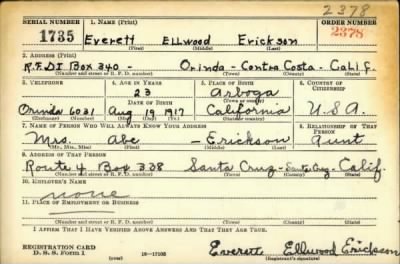 2378
SERIAL NUMBER 1. NAME (Print) ORDER NUMBER
1735 Everett Ellwood Erickson 2378
(First) (Middle) (Last)
2. ADDRESS (Print)
R.F.D.1 Box 340 - Orinda - Contra Costa - Calif.
(Number and street or R. F. D. number) (Town) (County) (State)
3. TELEPHONE 4. AGE IN YEARS 5. PLACE OF BIRTH 6. COUNTRY OF CITIZENSHIP
23 Arboga
DATE OF BIRTH (Town or county)
Orinda 6031 Aug 19 1917 California U.S.A.
(Exchange) (No.) (Mo.) (Day) (Yr.) (State or country)
7. NAME OF PERSON WHO WILL ALWAYS KNOW YOUR ADDRESS 8. RELATIONSHIP OF THAT PERSON
Mrs. Abe - Erickson Aunt
(Mr., Mrs., Miss) (First) (Middle) (Last)
9. ADDRESS OF THAT PERSON
Route 4 Box 308 Santa Cruz - Santa Cruz - Calif.
(Number and street or R. F. D. number) (Town) (County) (State)
10. EMPLOYER'S NAME
none
11. PLACE OF EMPLOYMENT OR BUSINESS
(Number and street or R. F. D. number) (Town) (County) (State)
I AFFIRM THAT I HAVE VERIFIED ABOVE ANSWERS AND THAT THEY ARE TRUE.
REGISTRATION CARD
D. S. S. Form 1 16—17105 Everett Ellwood Erickson
(over) (Registrant's signature)